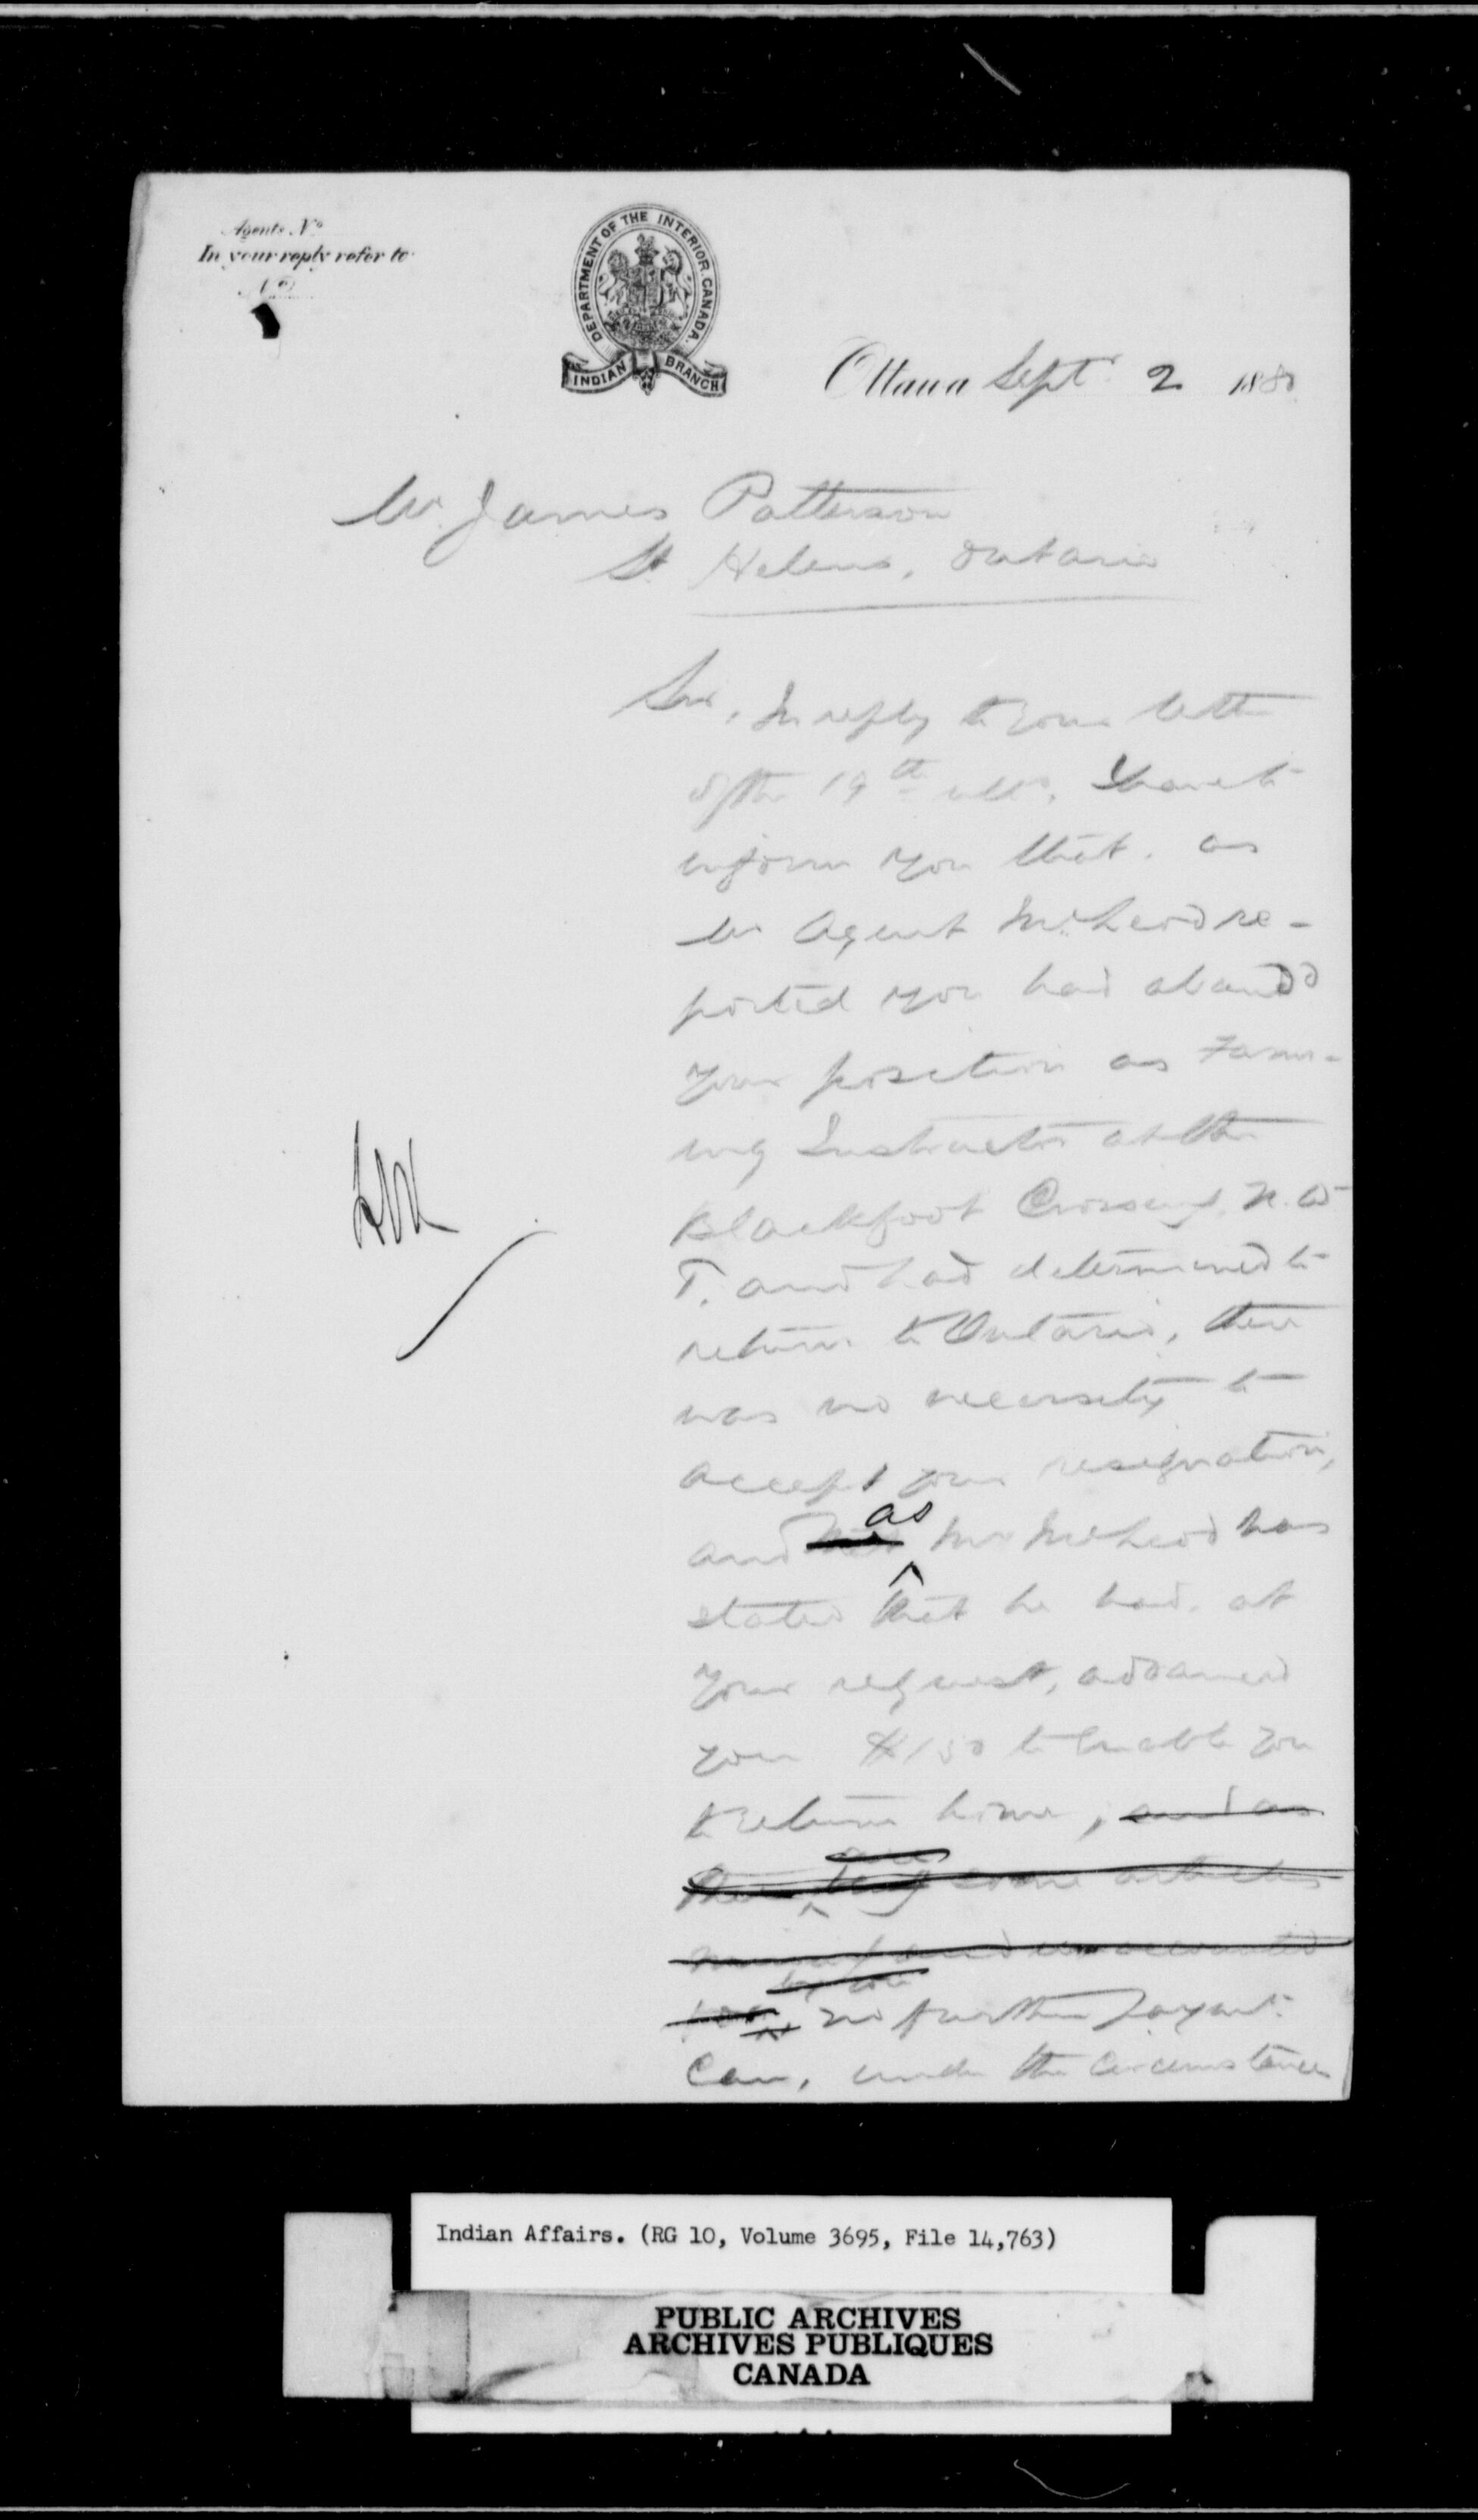 Agents No
In your reply refer to
No
DEPARTMENT OF THE INTERIOR. CANADA.
INDIAN BRANCH
Ottawa Sept 2 1880
Mr. James Patterson
St Helens, Ontario
Sir, In reply to your letter
of the 19th ulto, I have to
inform you that. as
Mr Agent McLeod re-
ported you had aband
your position as Farm-
ing Instructor at the
Blackfoot Crossing, N. W
T. and had determined to
return to Ontario, there
was no necessity to
accept your resignation,
as
and Mr McLeod has
stated that he had. at
your request, advanced
you $150 to enable you
to return home, and as
are
there being some articles
and unaccounted
by you
for no further payment
can, under the circumstances
Indian Affairs. (RG 10, Volume 3695, File 14,763)
PUBLIC ARCHIVES
ARCHIVES PUBLIQUES
CANADA